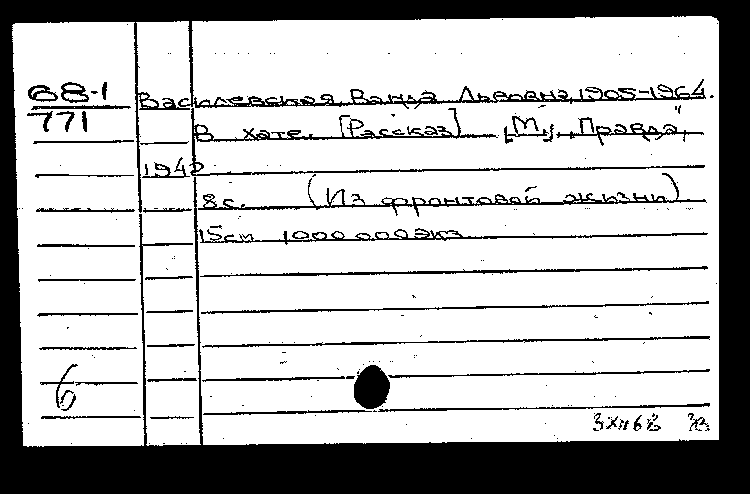 68-1
771
Василевская, Ванда Львовна, 1905-1964.
В хате. [Рассказ] [М.], "Правда",
1942
8 с. (Из фронтовой жизни)
15 см 1000 000 экз.
6